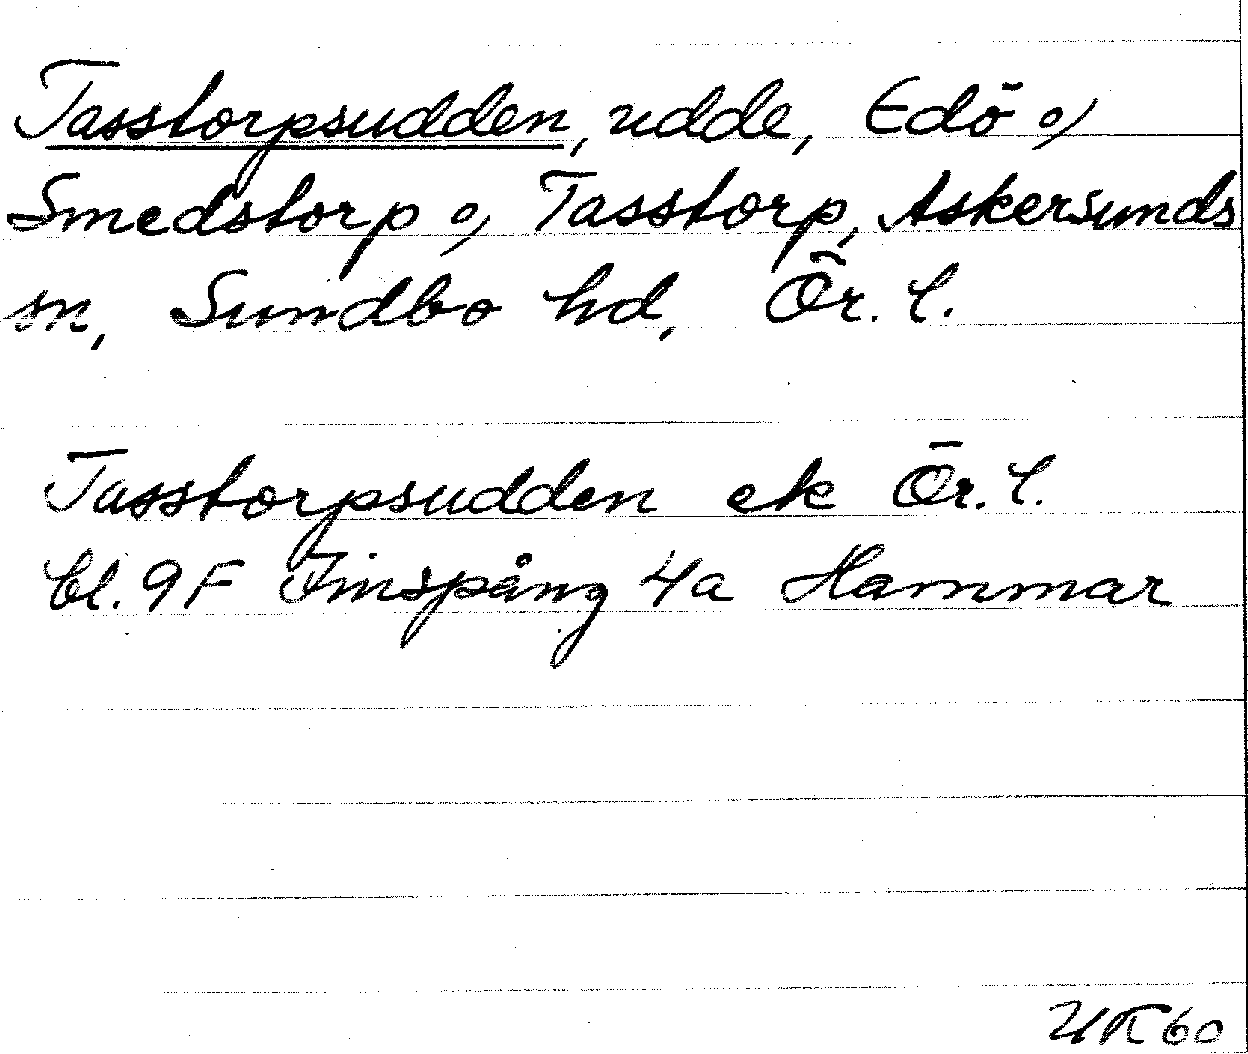 Tasstorpsudden, udde, Edö o/
Smedstorp o/ Tasstorp, Askersunds
sn, Sundbo hd, Ör. l.
Tasstorpsudden ek Ör. l.
bl. 9F Finspång 4a Hammar
UK 60